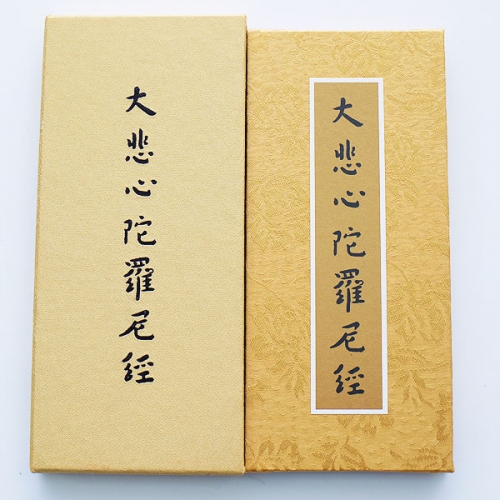 大悲心陀羅尼經
大悲心陀羅尼經